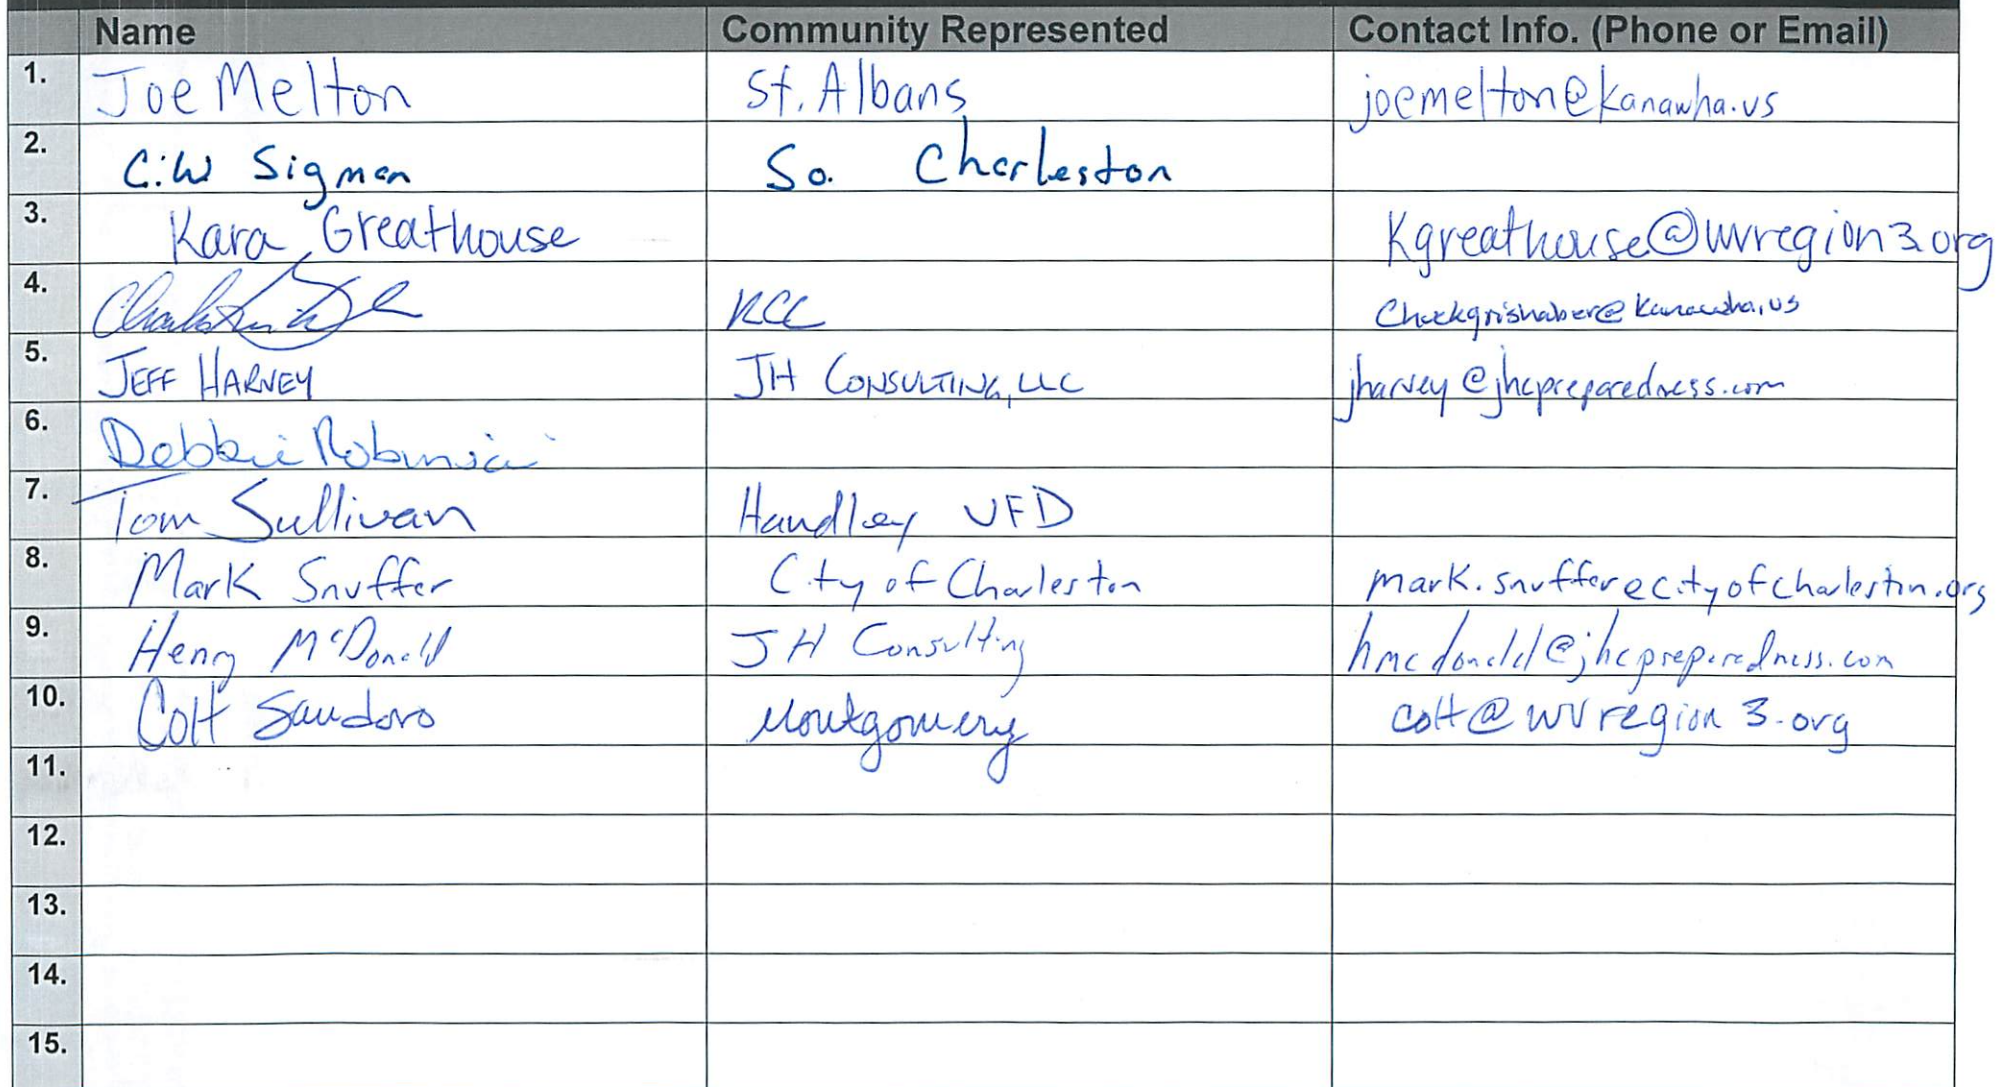 Name Community Represented Contact Info. (Phone or Email)
1. Joe Melton St. Albans joemelton@kanawha.us
2. C.W Sigman So. Charleston
3. Kara Greathouse Kgreathouse@wvregion3.org
4. KCC Chuckgrishaber@kanawha.us
5. JEFF HARVEY JH CONSULTING, LLC jharvey@jhcpreparedness.com
6. Debbie Robinson
7. Tom Sullivan Handley VFD
8. Mark Snuffer City of Charleston mark.snuffer@cityofcharleston.org
9. Henry McDonald JH Consulting hmcdonald@jhcpreparedness.com
10. Colt Sandoro Montgomery colt@wvregion3.org
11.
12.
13.
14.
15.